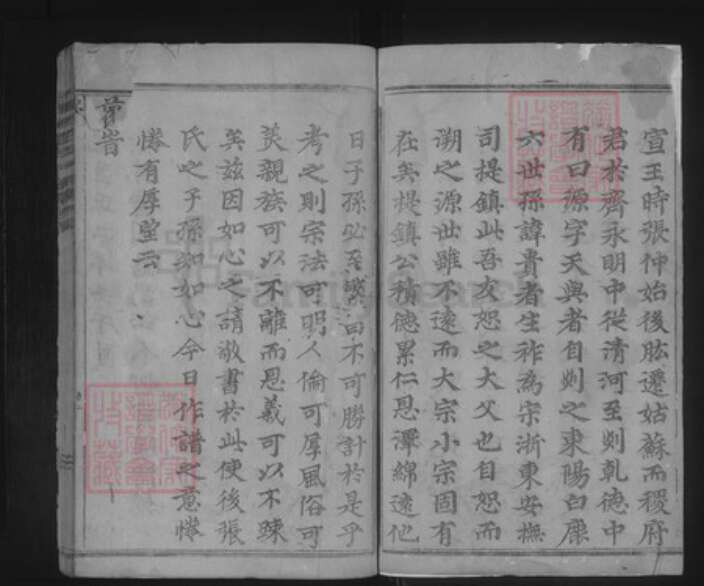 宣王時張仲始後肱遷姑蘇而稷府
君於齊永明中從清河至剡乾德中
有曰源字天與者自剡之東陽白鹿
六世孫諱貴者生祚為宋浙東安撫
司提鎮此吾友恕之大父也自恕而
溯之源世雖不遠而大宗小宗固有
在矣提鎮公積德累仁恩澤綿遠他
日子孫必至 不可勝計於是乎
考之則宗法可明人倫可厚風俗可
美親族可以不離而恩義可以不踈
矣茲因如心之請敬書於此使後張
氏之子孫知如心今日作譜之意惓
惓有厚望云